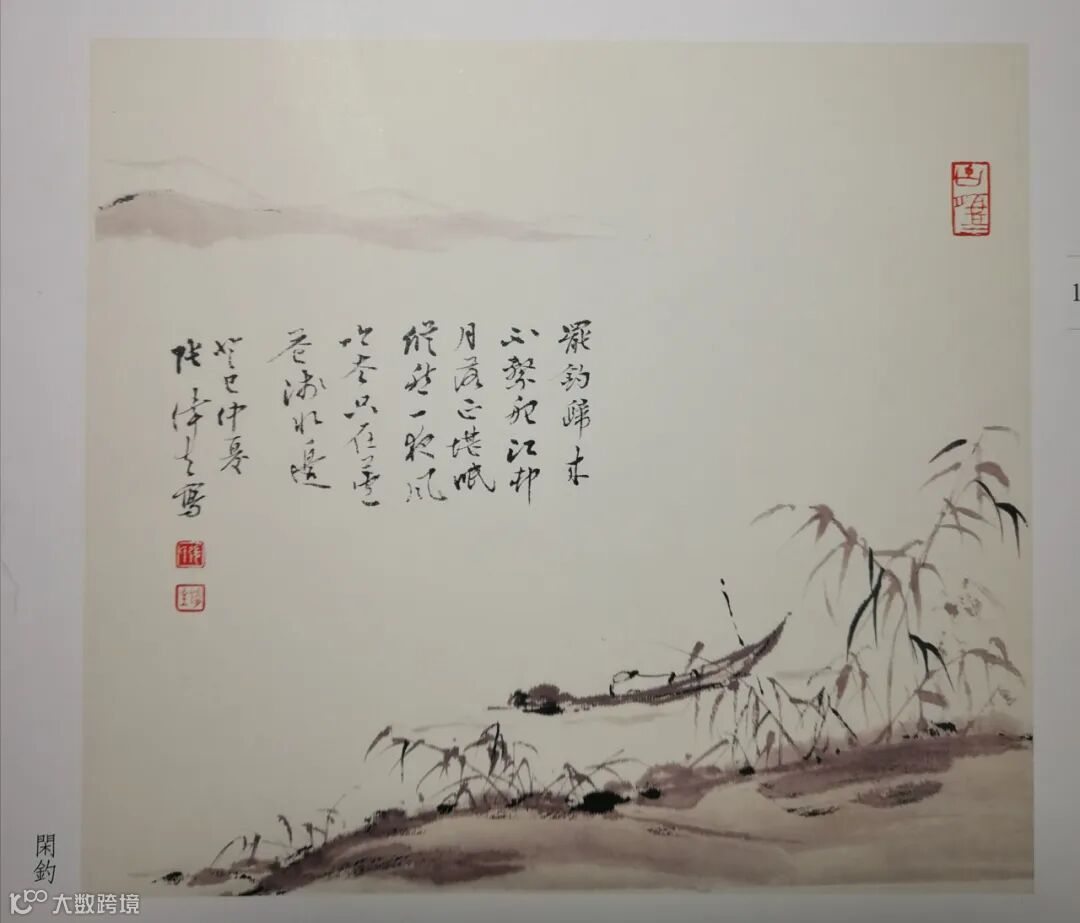 罷釣歸來
不繫船江邨
月落正堪眠
縱然一夜風
吹去只在蘆
花淺水邊
癸巳仲夏
張偉寫
閑釣
大数跨境